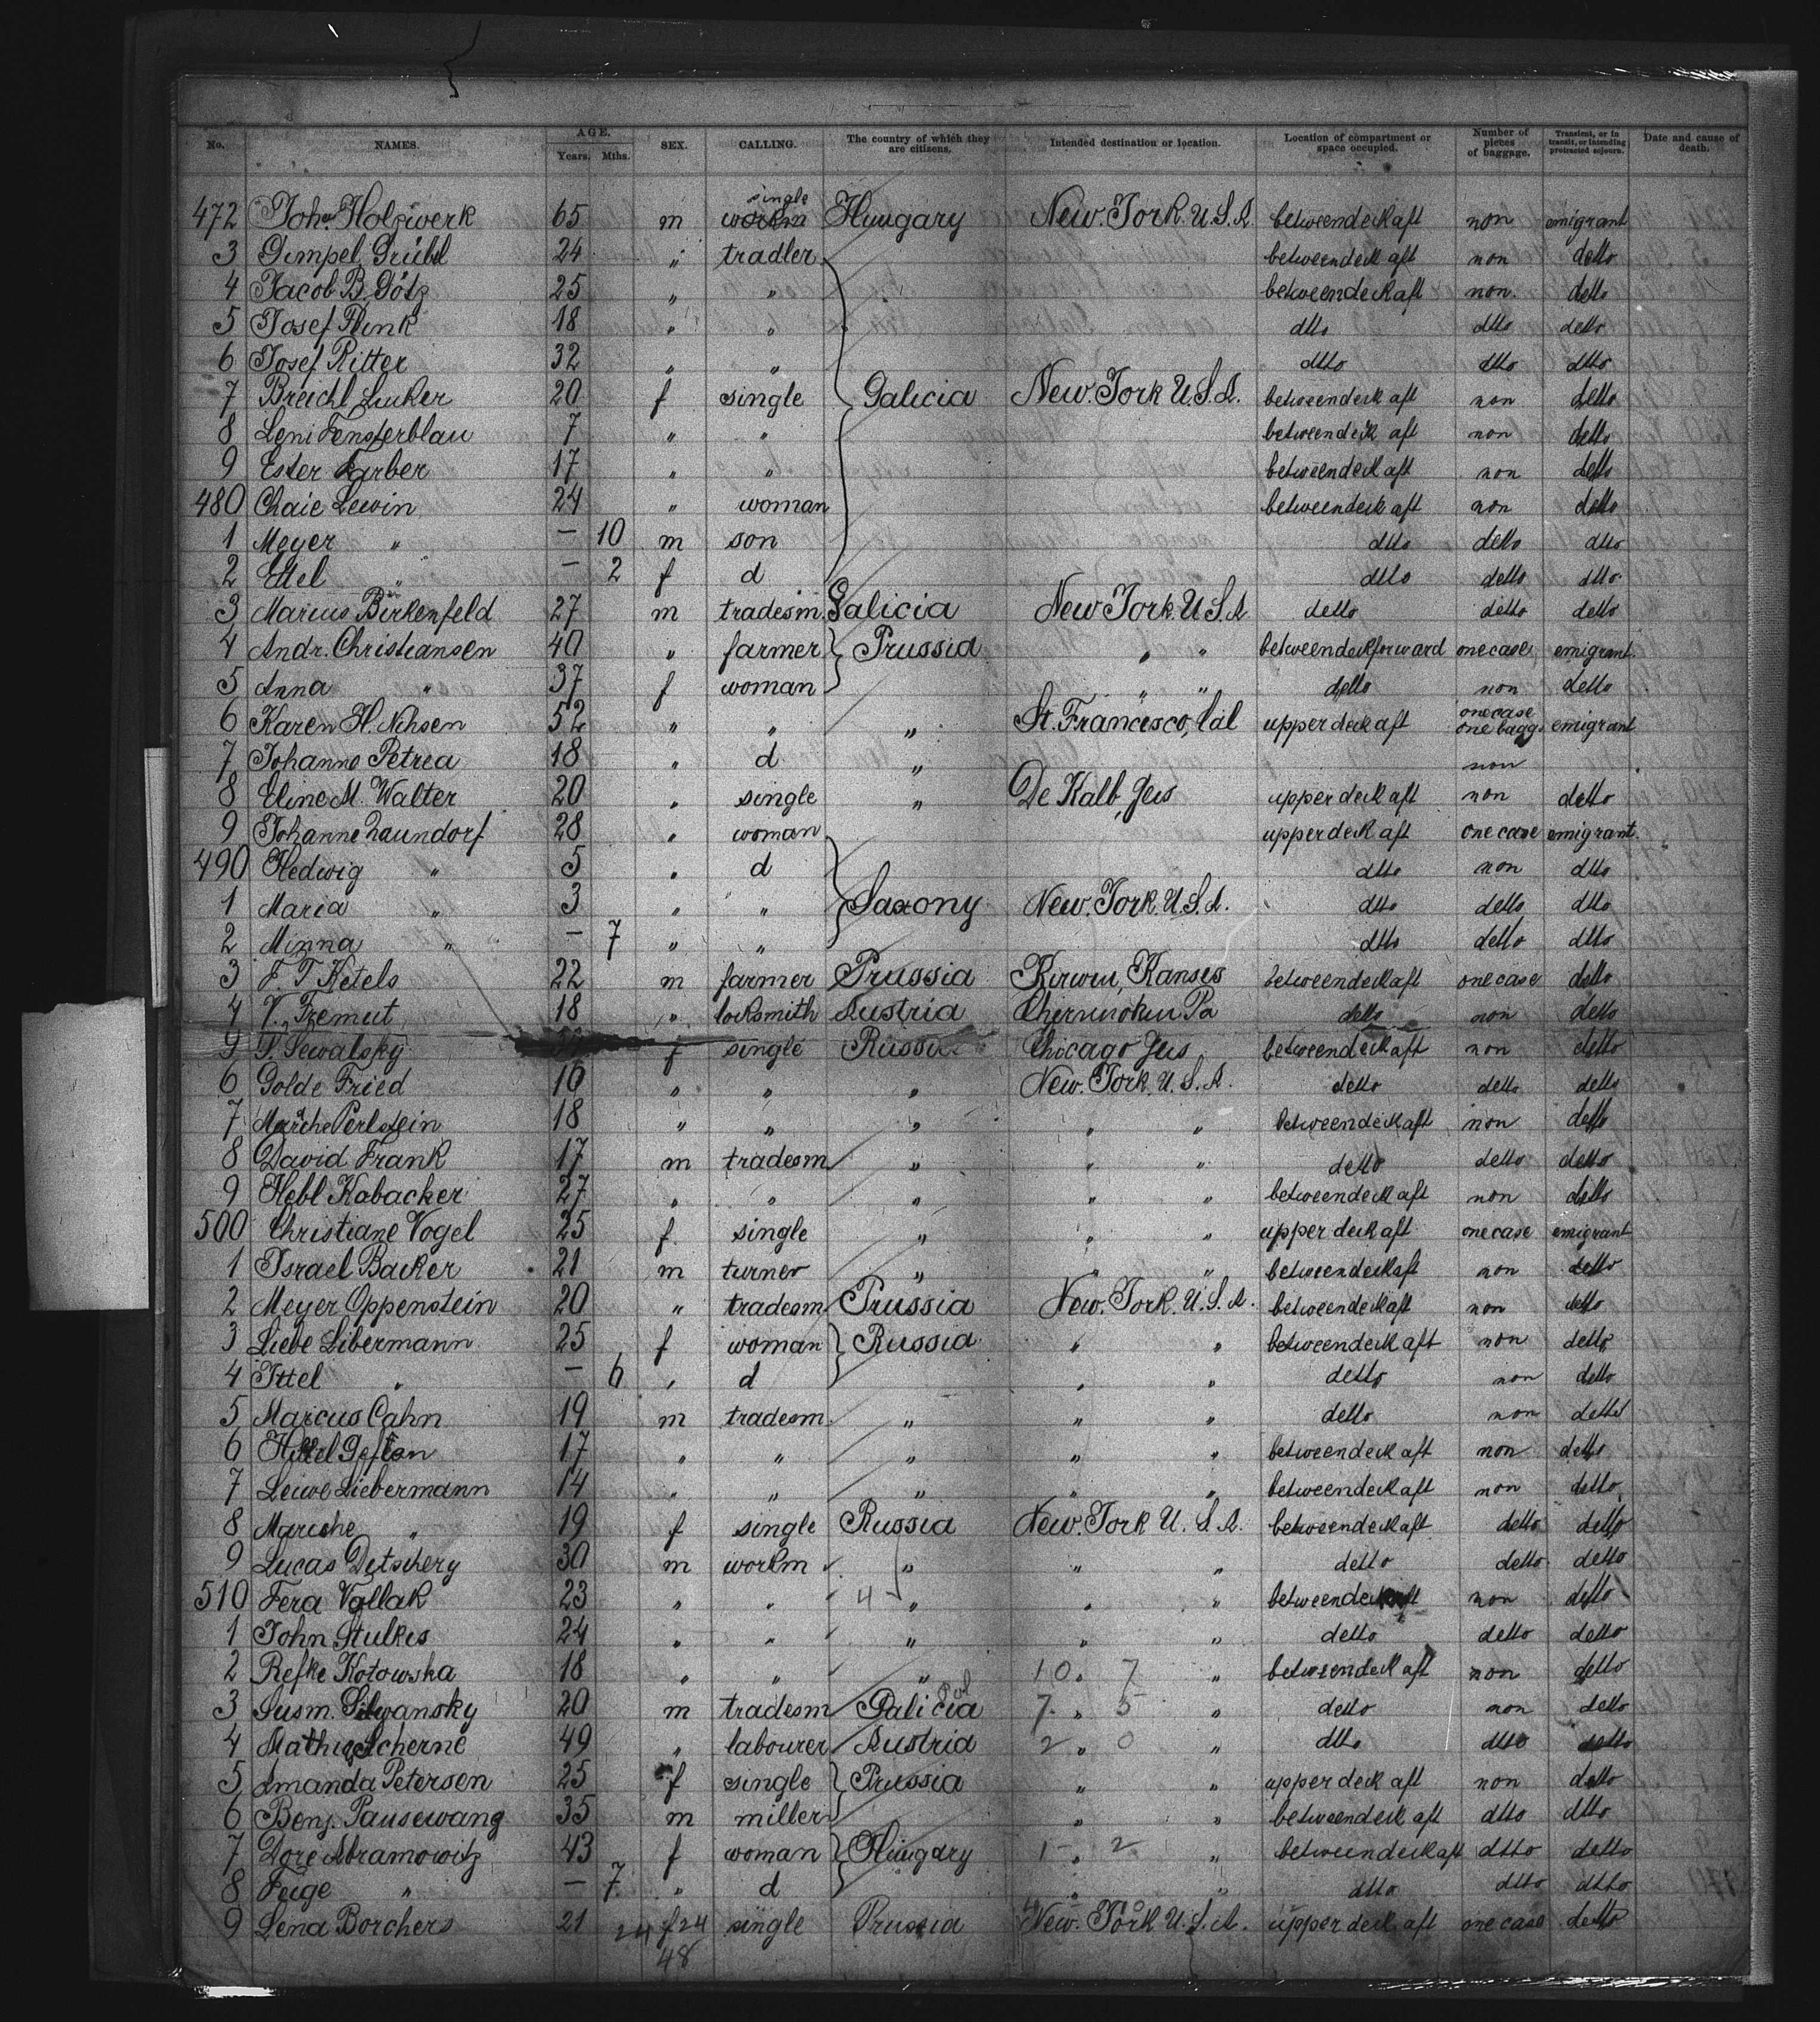 No. NAMES. AGE. Years. Mths. SEX. CALLING. The country of which they are citizens. Intended destination or location. Location of compartment or space occupied. Number of pieces of baggage. Transient, or in transit, or intending protracted sojourn. Date and cause of death.
single
472 Joh. Holzwerk 65 m workm Hungary New. York. U.S.A. betweendeck aft non emigrant
3 Gimpel Grübl 24 " tradler betweendeck aft non detto
4 Jacob B. Götz 25 " " betweendeck aft non. detto
5 Josef Flink 18 " " dtto dtto detto
6 Josef Ritter 32 " " dtto dtto dtto
7 Breichl Lucker 20 f single Galicia New. York U.S.A. betweendeck aft non detto
8 Leni Fensterblau 7 " " betweendeck aft non detto
9 Ester Farber 17 " " betweendeck aft non detto
480 Chaie Lewin 24 " woman betweendeck aft non detto
1 Meyer " – 10 m son dtto detto dtto
2 Ettel " – 2 f d dtto detto dtto
3 Marcus Birkenfeld 27 m tradesm. Galicia New York. U.S.A. detto detto detto
4 Andr. Christiansen 40 " farmer Prussia " " betweendeck forward one case emigrant.
5 Anna " 37 f woman " " detto non detto
6 Karen H. Nihsen 52 " " " St. Francisco, Cal upper deck aft one case one bagg. emigrant
7 Johanne Petrea 18 " d " non
8 Eline M. Walter 20 " single " De Kalb, Jeis upper deck aft non detto
9 Johanne Zaundorf 28 " woman upper deck aft one case emigrant.
490 Hedwig " 5 " d dtto non dtto
1 Maria " 3 " " Saxony New. York. U.S.A. dtto detto dtto
2 Minna " – 7 " " dtto detto dtto
3 F. T. Ketels 22 m farmer Prussia Kirwin, Kanses betweendeck aft one case detto
4 V. Tremut 18 " locksmith Austria Pa detto non detto
9 P. Sewalsky f single Russia Chicago Jeis betweendeck aft non detto
6 Golde Fried 16 " " " New. York. U.S.A. detto detto detto
7 Marche Perlstein 18 " " " " " betweendeck aft non detto
8 David Frank 17 m tradesm " " " detto detto detto
9 Hebl Kabacker 27 " " " " " betweendeck aft non detto
500 Christiane Vogel 25 f. single " " " upper deck aft one case emigrant
1 Israel Backer 21 m turner " " " betweendeck aft non detto
2 Meyer Oppenstein 20 " tradesm Prussia New. York. U.S.A. betweendeck aft non detto
3 Liebe Libermann 25 f woman Russia " " betweendeck aft non detto
4 Ittel " – 6 " d " " detto non detto
5 Marcus Cahn 19 m tradesm. " " " detto non detto
6 Hillel Geften 17 " " " " " betweendeck aft non detto
7 Leiwe Liebermann 14 " " " " " betweendeck aft non detto
8 Mariche " 19 f single Russia New. York U.S.A. betweendeck aft detto detto
9 Lucas Detschery 30 m workm " " " detto detto detto
510 Fera Vollak 23 " " 4 " " " betweendeck aft non detto
1 John Stulkes 24 " " " " " detto detto detto
2 Refke Kotowska 18 " " " 10 " 7 " betweendeck aft non detto
3 Susm. Silwansky 20 m tradesm Galicia Pol 7 " 5 " detto non detto
4 Mathias Scherne 49 " labourer Austria 2 " 0 " dtto dtto detto
5 Amanda Petersen 25 f single Prussia " " upper deck aft non detto
6 Benj. Pausewang 35 m miller " " betweendeck aft dtto dtto
7 Dore Abramowitz 43 f woman Hungary 1 " 2 " betweendeck aft dtto detto
8 Feige " – 7 " d " " dtto dtto dtto
9 Lena Borchers 21 24 f 24 single Prussia New. York U.S.A. upper deck aft one case detto
48